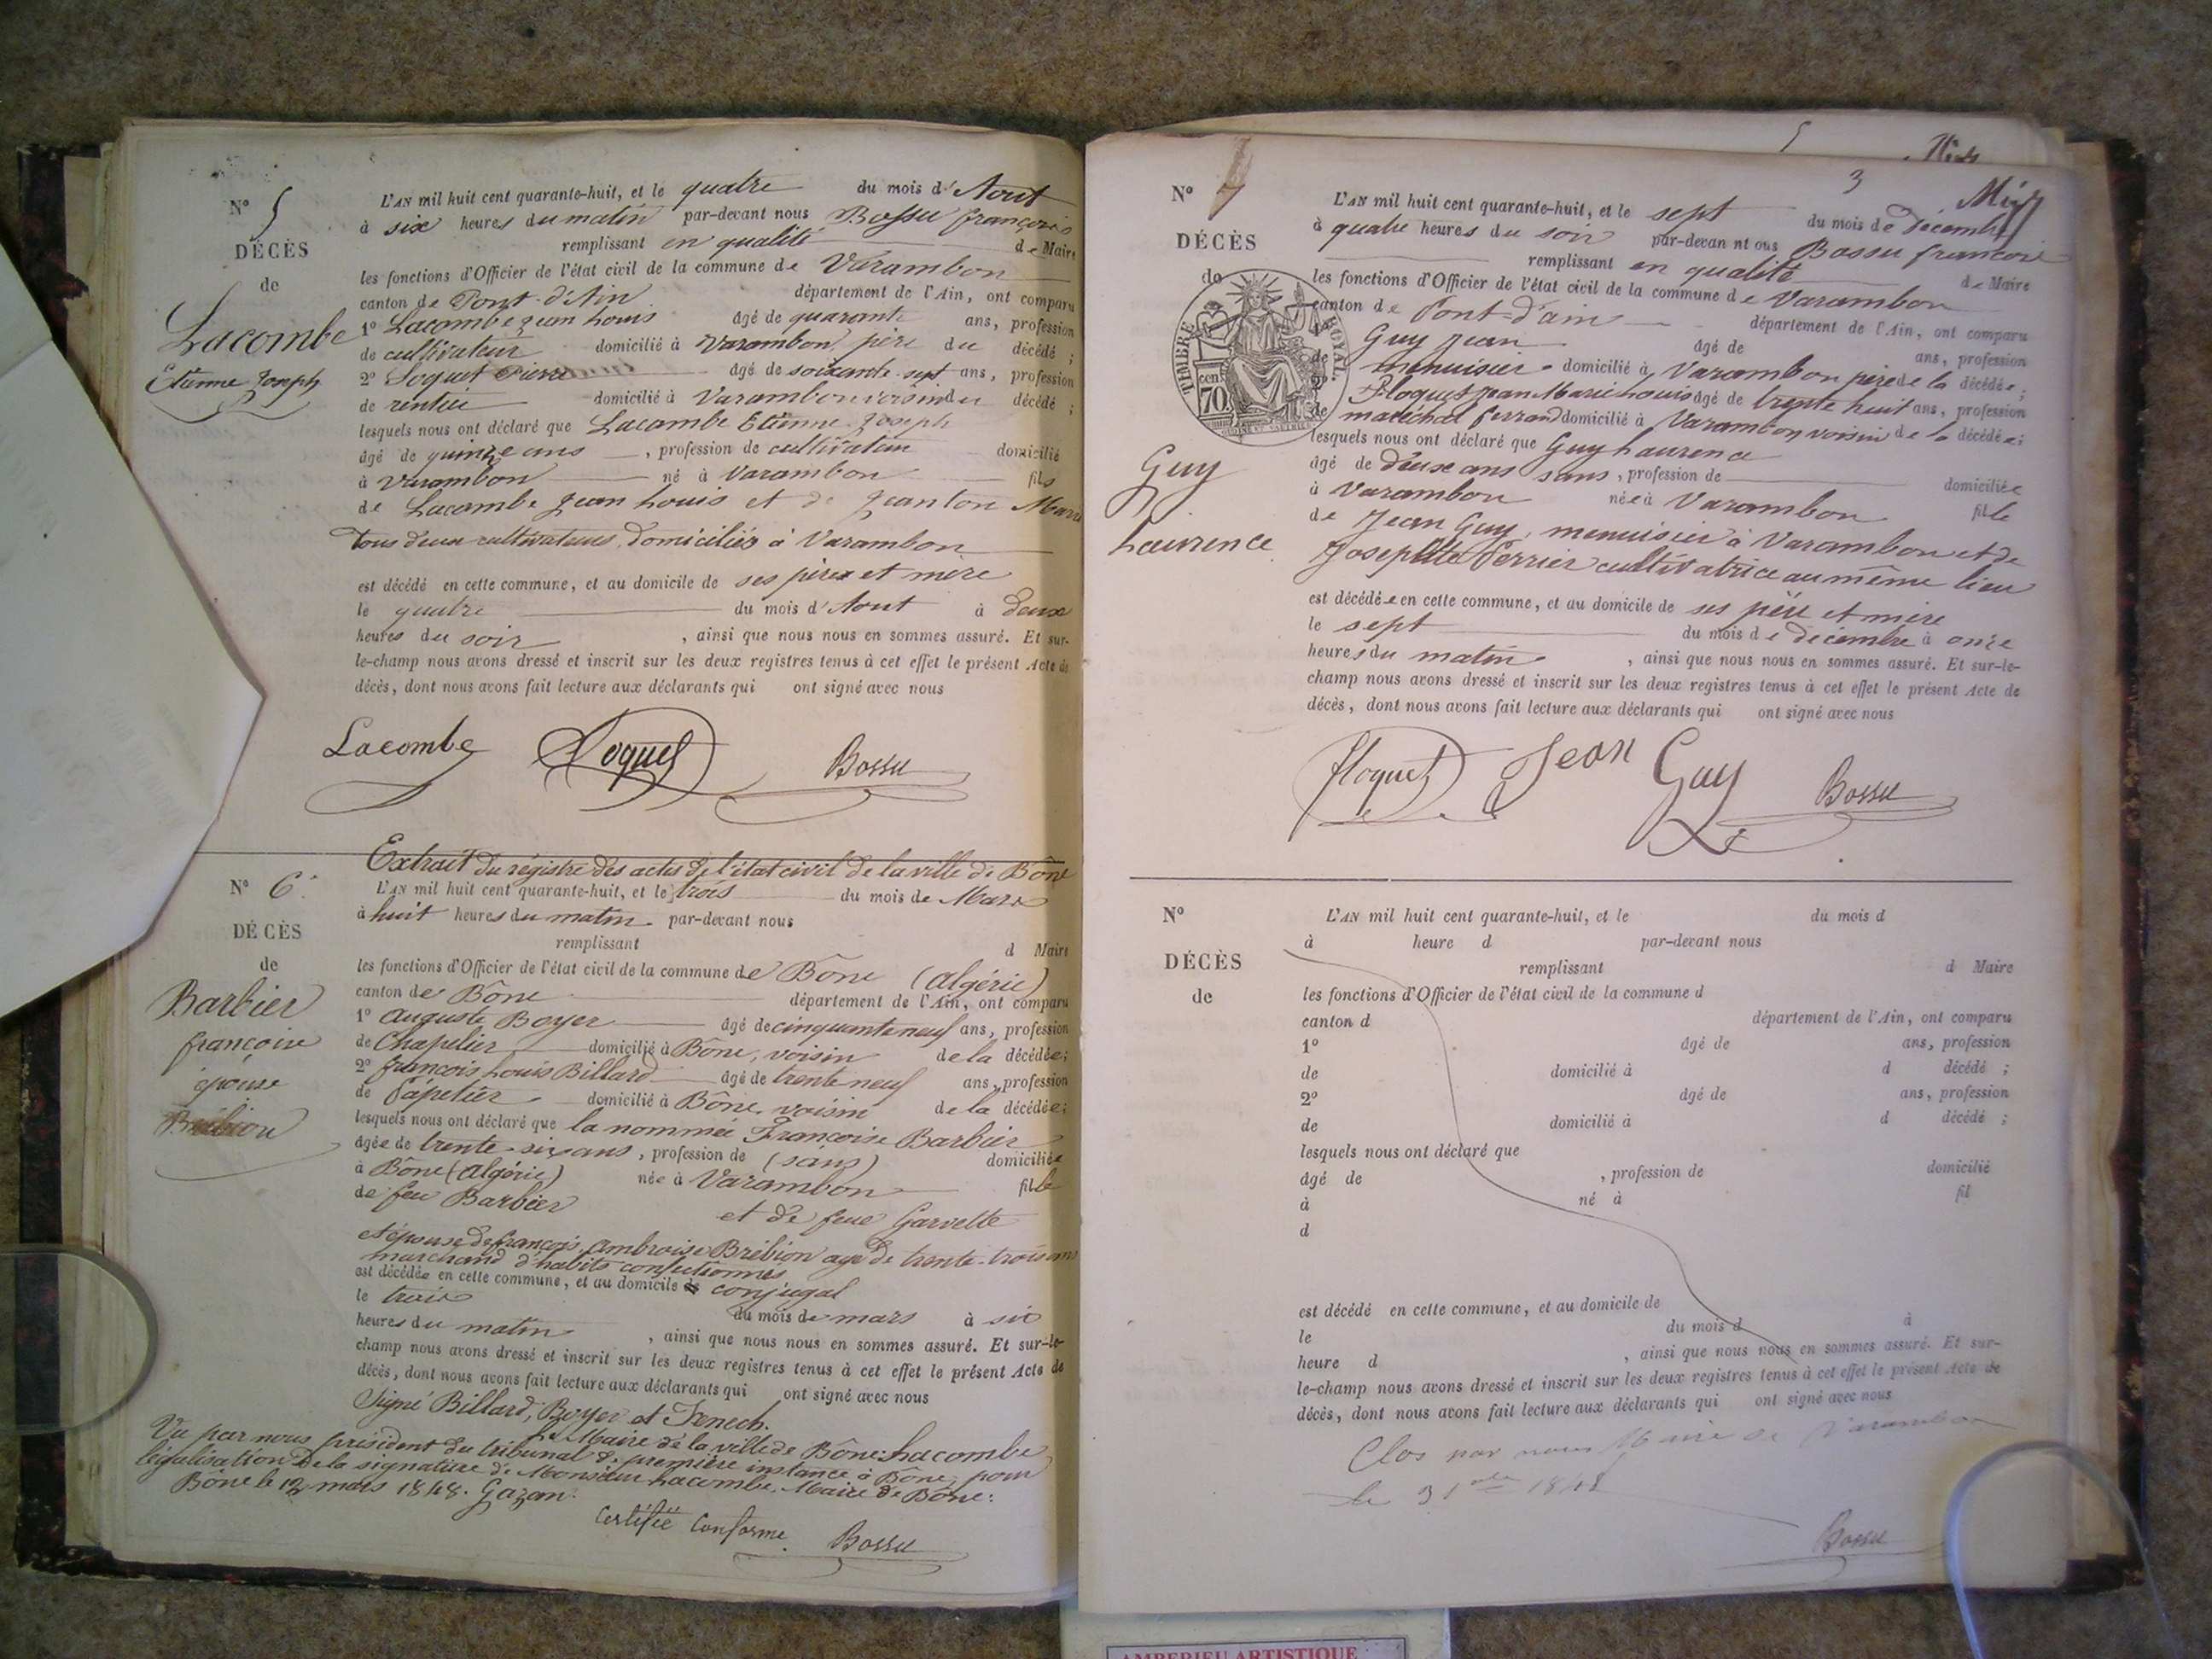 N° 5
DÉCÈS
de
Lacombe
Etienne Joseph
L'AN mil huit cent quarante-huit, et le quatre du mois d'Aout
à six heures du matin par-devant nous Bossu françois
remplissant en qualité de Maire
les fonctions d'Officier de l'état civil de la commune de Varambon
canton de Pont-d'Ain département de l'Ain, ont comparu
1° Lacombe jean Louis âgé de quarante ans, profession
de cultivateur domicilié à Varambon, père du décédé ;
2° Loquet Pierre âgé de soixante-sept ans, profession
de rentier domicilié à Varambon voisin du décédé ;
lesquels nous ont déclaré que Lacombe Etienne Joseph
âgé de quinze ans , profession de cultivateur domicilié
à Varambon né à Varambon fils
de Lacombe Jean Louis et de Jeanton Marie
tous deux cultivateurs domiciliés à Varambon
est décédé en cette commune, et au domicile de ses père et mere
le quatre du mois d'Aout à deux
heures du soir , ainsi que nous nous en sommes assuré. Et sur-
le-champ nous avons dressé et inscrit sur les deux registres tenus à cet effet le présent Acte de
décès, dont nous avons fait lecture aux déclarants qui ont signé avec nous
Lacombe Loquet Bossu
Extrait du régistre des actes de l'état civil de la ville de Bône
N° 6
DÉCÈS
de
Barbier
francoise
épouse
Brébion
L'AN mil huit cent quarante-huit, et le trois du mois de Mars
à huit heures du matin par-devant nous
remplissant d Maire
les fonctions d'Officier de l'état civil de la commune de Bône (Algérie)
canton de Bône département de l'Ain, ont comparu
1° Auguste Boyer âgé de cinquante neuf ans, profession
de Chapelier domicilié à Bône, voisin de la décédée ;
2° françois Louis Billard âgé de trente neuf ans, profession
de Papetier domicilié à Bône, voisin de la décédée ;
lesquels nous ont déclaré que la nommée Francoise Barbier
âgée de trente-six ans , profession de (sans) domiciliée
à Bône (Algérie) née à Varambon fille
de feu Barbier et de feue Garvette
et épouse de françois Ambroise Brébion agé de trente-trois ans
marchand d'habits confectionnés
est décédée en cette commune, et au domicile conjugal
le trois du mois de mars à six
heures du matin , ainsi que nous nous en sommes assuré. Et sur-le-
champ nous avons dressé et inscrit sur les deux registres tenus à cet effet le présent Acte de
décès, dont nous avons fait lecture aux déclarants qui ont signé avec nous
Signé Billard, Boyer et Fenech.
Le Maire de la ville de Bône: Lacombe
Vu par nous président du tribunal de première instance à Bône, pour
légalisation de la signature de Monsieur Lacombe, Maire de Bône:
Bône le 12 mars 1848. Gazan.
Certifié Conforme. Bossu
5
3
N° 7
DÉCÈS
de
TIMBRE ROYAL
70 cen
Guy
Laurence
L'AN mil huit cent quarante-huit, et le sept du mois de décembre
à quatre heures du soir par-devan nt ous Bossu francois
remplissant en qualité de Maire
les fonctions d'Officier de l'état civil de la commune de Varambon
canton de Pont-d'ain département de l'Ain, ont comparu
Guy Jean âgé de ans, profession
de menuisier domicilié à Varambon père de la décédée ;
2° Floquet Jean Marie Louis âgé de trente huit ans, profession
de maréchal ferrand domicilié à Varambon voisin de la décédée ;
lesquels nous ont déclaré que Guy Laurence
âgé de deux ans sans , profession de domiciliée
à Varambon née à Varambon fille
de Jean Guy, menuisier à Varambon et de
Josephte Perrier cultivatrice au même lieu
est décédée en cette commune, et au domicile de ses père et mère
le sept du mois de décembre à onze
heures du matin , ainsi que nous nous en sommes assuré. Et sur-le-
champ nous avons dressé et inscrit sur les deux registres tenus à cet effet le présent Acte de
décès, dont nous avons fait lecture aux déclarants qui ont signé avec nous
floquet Jean Guy Bossu
N°
DÉCÈS
de
L'AN mil huit cent quarante-huit, et le du mois d
à heure d par-devant nous
remplissant d Maire
les fonctions d'Officier de l'état civil de la commune d
canton d département de l'Ain, ont comparu
1° âgé de ans, profession
de domicilié à d décédé ;
2° âgé de ans, profession
de domicilié à d décédé ;
lesquels nous ont déclaré que
âgé de , profession de domicilié
à né à fil
d
est décédé en cette commune, et au domicile de
le du mois d à
heure d , ainsi que nous nous en sommes assuré. Et sur-
le-champ nous avons dressé et inscrit sur les deux registres tenus à cet effet le présent Acte de
décès, dont nous avons fait lecture aux déclarants qui ont signé avec nous
Clos par nous Maire de Varambon
le 31 1848
Bossu
AMBERIEU ARTISTIQUE